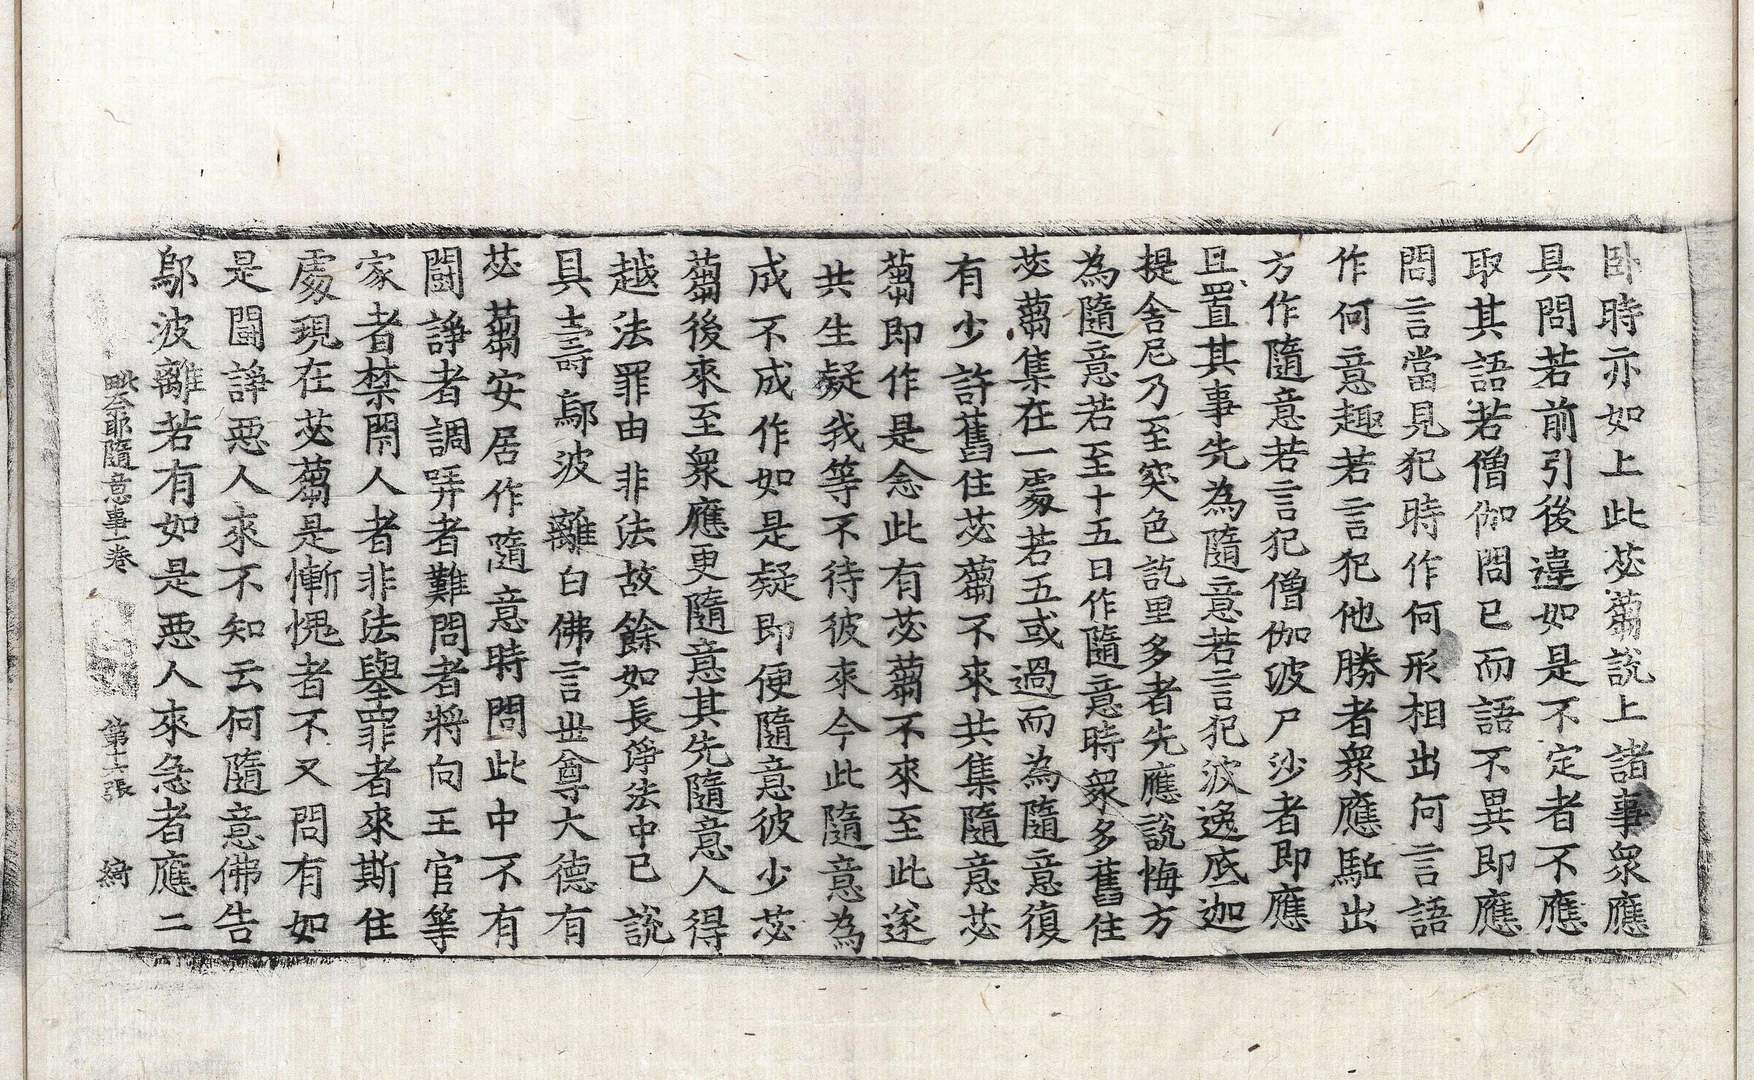 臥時亦如上此苾蒭說上諸事衆應
具問若前引後違如是不定者不應
取其語若僧伽問已而語不異即應
問言當見犯時作何形相出何言語
作何意趣若言犯他勝者衆應駈出
方作隨意若言犯僧伽波尸沙者即應
且置其事先為隨意若言犯波逸底迦
提舍尼乃至突色訖里多者先應說悔方
為隨意若至十五日作隨意時衆多舊住
苾蒭集在一處若五或過而為隨意復
有少許舊住苾蒭不來共集隨意苾
蒭即作是念此有苾蒭不來至此遂
共生疑我等不待彼來今此隨意為
成不成作如是疑即便隨意彼少苾
蒭後來至衆應更隨意其先隨意人得
越法罪由非法故餘如長淨法中已說
具壽鄔波離白佛言世尊大德有
苾蒭安居作隨意時問此中不有
鬪諍者調哢者難問者將向王官等
家者禁閇人者非法舉罪者來斯住
處現在苾蒭是慚愧者不又問有如
是鬪諍惡人來不知云何隨意佛告
鄔波離若有如是惡人來急者應二
毗奈耶隨意事一卷　第十六張　綺